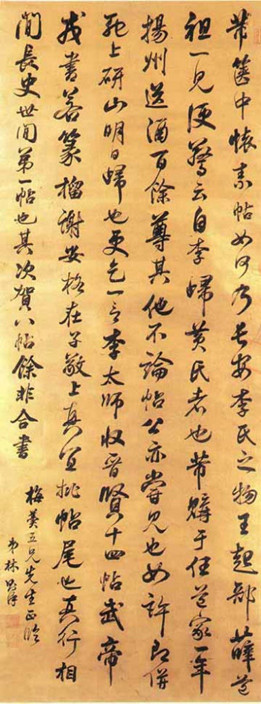 芾篋中懷素帖如何乃長安李氏之物王起部薛道
祖一見便驚云自李歸黃氏者也芾購于任道家一年
揚州送酒百餘尊其他不論帖公亦嘗見也如許即併
馳上研山明日歸也更乞一言李太師收晉賢十四帖武帝
戎書若篆籀謝安格在子敬上真宜批帖尾也真行相
間長史世間第一帖也其次賀八帖餘非合書
五兄先生正
弟林則徐